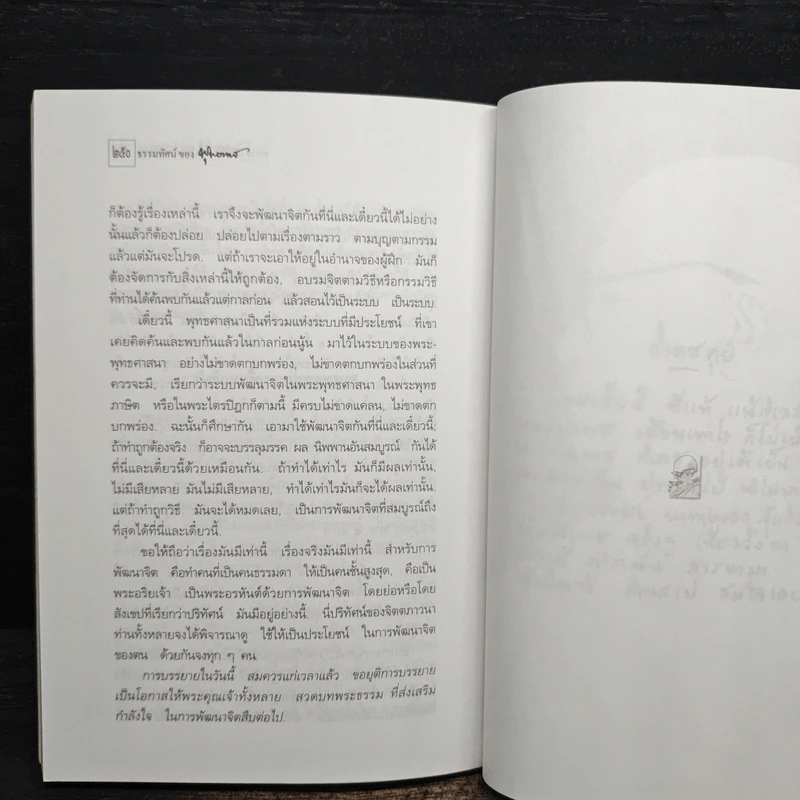 ๒๕๐ ธรรมทัศน์ ของ พุทธทาส
ก็ต้องรู้เรื่องเหล่านี้ เราจึงจะพัฒนาจิตกันที่นี่และเดี๋ยวนี้ได้ไม่อย่าง
นั้นแล้วก็ต้องปล่อย ปล่อยไปตามเรื่องตามราว ตามบุญตามกรรม
แล้วแต่มันจะโปรด. แต่ถ้าเราจะเอาให้อยู่ในอำนาจของผู้ฝึก มันก็
ต้องจัดการกับสิ่งเหล่านี้ให้ถูกต้อง, อบรมจิตตามวิธีหรือกรรมวิธี
ที่ท่านได้ค้นพบกันแล้วแต่กาลก่อน แล้วสอนไว้เป็นระบบ เป็นระบบ.
เดี๋ยวนี้ พุทธศาสนาเป็นที่รวมแห่งระบบที่มีประโยชน์ ที่เขา
เคยคิดค้นและพบกันแล้วในกาลก่อนนู้น มาไว้ในระบบของพระ-
พุทธศาสนา อย่างไม่ขาดตกบกพร่อง, ไม่ขาดตกบกพร่องในส่วนที่
ควรจะมี, เรียกว่าระบบพัฒนาจิตในพระพุทธศาสนา ในพระพุทธ
ภาษิต หรือในพระไตรปิฎกก็ตามนี้ มีครบไม่ขาดแคลน, ไม่ขาดตก
บกพร่อง. ฉะนั้นก็ศึกษากัน เอามาใช้พัฒนาจิตกันที่นี่และเดี๋ยวนี้;
ถ้าทำถูกต้องจริง ก็อาจจะบรรลุมรรค ผล นิพพานอันสมบูรณ์ กันได้
ที่นี่และเดี๋ยวนี้ด้วยเหมือนกัน. ถ้าทำได้เท่าไร มันก็มีผลเท่านั้น,
ไม่มีเสียหลาย มันไม่มีเสียหลาย, ทำได้เท่าไรมันก็จะได้ผลเท่านั้น.
แต่ถ้าทำถูกวิธี มันจะได้หมดเลย, เป็นการพัฒนาจิตที่สมบูรณ์ถึง
ที่สุดได้ที่นี่และเดี๋ยวนี้.
ขอให้ถือว่าเรื่องมันมีเท่านี้ เรื่องจริงมันมีเท่านี้ สำหรับการ
พัฒนาจิต คือทำคนที่เป็นคนธรรมดา ให้เป็นคนชั้นสูงสุด, คือเป็น
พระอริยเจ้า เป็นพระอรหันต์ด้วยการพัฒนาจิต โดยย่อหรือโดย
สังเขปที่เรียกว่าปริทัศน์ มันมีอยู่อย่างนี้. นี่ปริทัศน์ของจิตตภาวนา
ท่านทั้งหลายจงได้พิจารณาดู ใช้ให้เป็นประโยชน์ ในการพัฒนาจิต
ของตน ด้วยกันจงทุก ๆ คน.
การบรรยายในวันนี้ สมควรแก่เวลาแล้ว ขอยุติการบรรยาย
เป็นโอกาสให้พระคุณเจ้าทั้งหลาย สวดบทพระธรรม ที่ส่งเสริม
กำลังใจ ในการพัฒนาจิตสืบต่อไป.